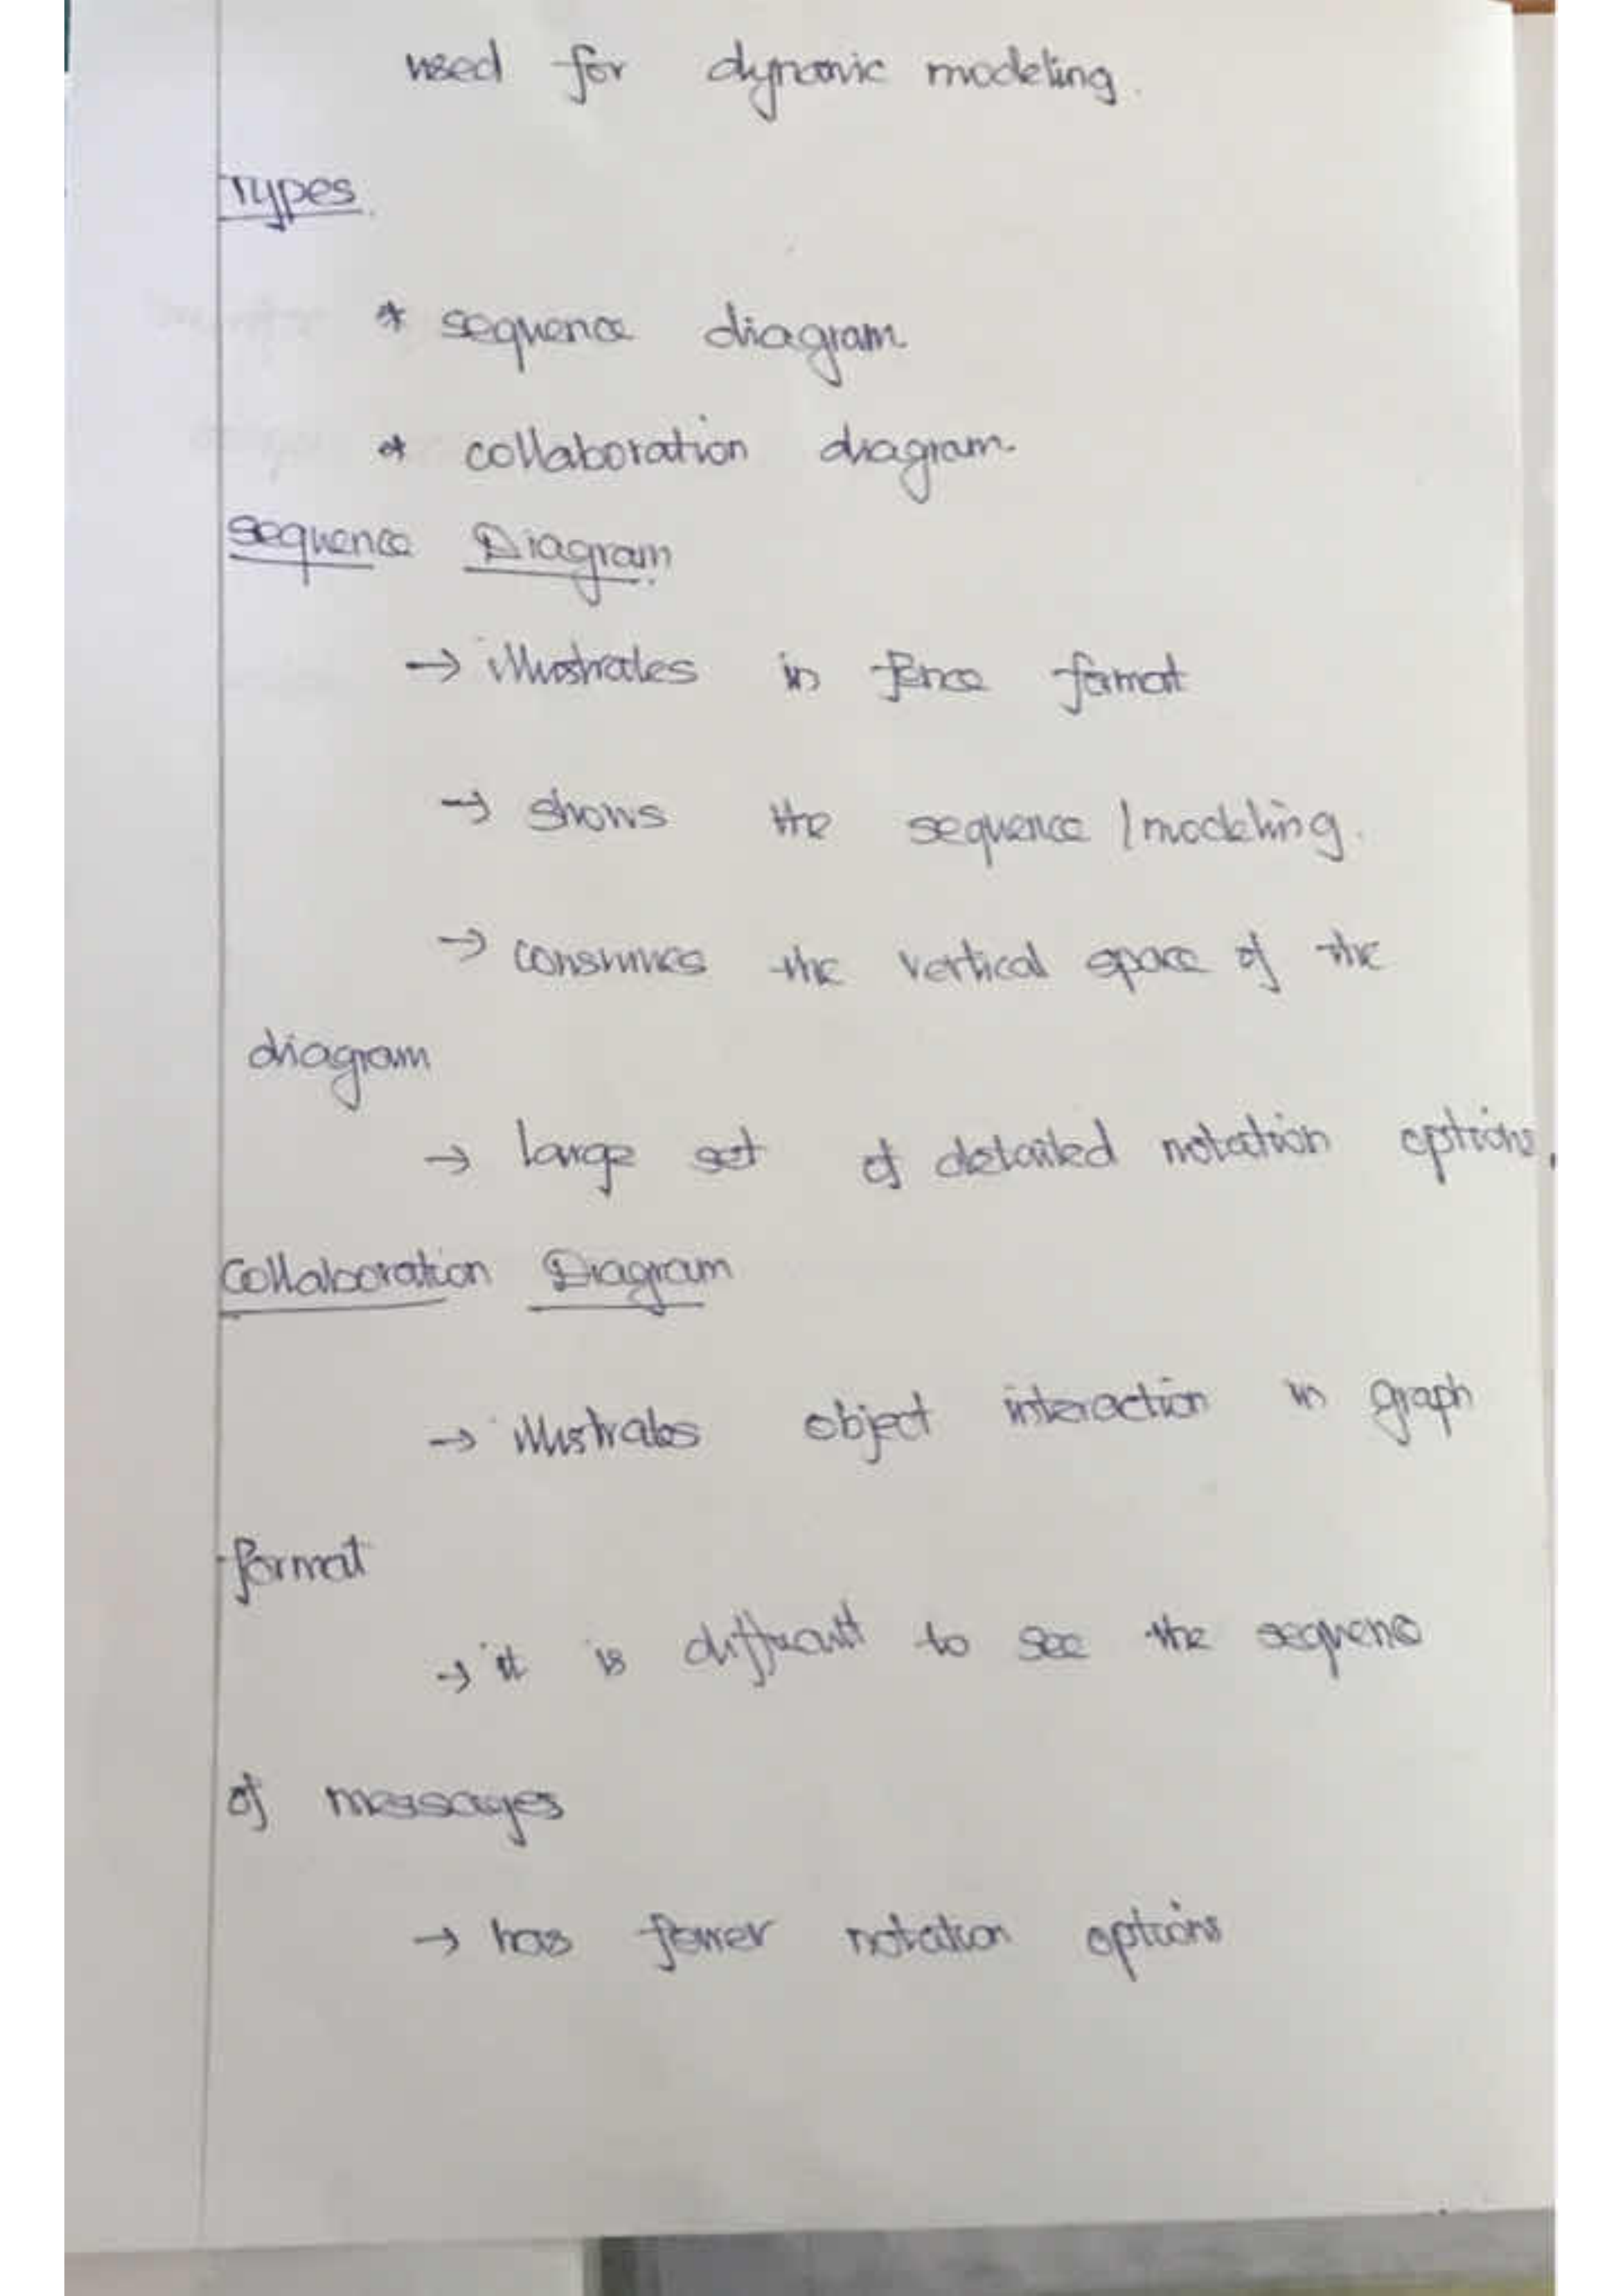 used for dynamic modeling.
Types.
* sequence diagram
* collaboration diagram
Sequence Diagram.
→ illustrates in fence format
→ shows the sequence / modeling.
→ consumes the vertical space of the
diagram
→ large set of detailed notation options.
Collaboration Diagram
→ illustrates object interaction in graph
format
→ it is difficult to see the sequence
of messages
→ has fewer notation options